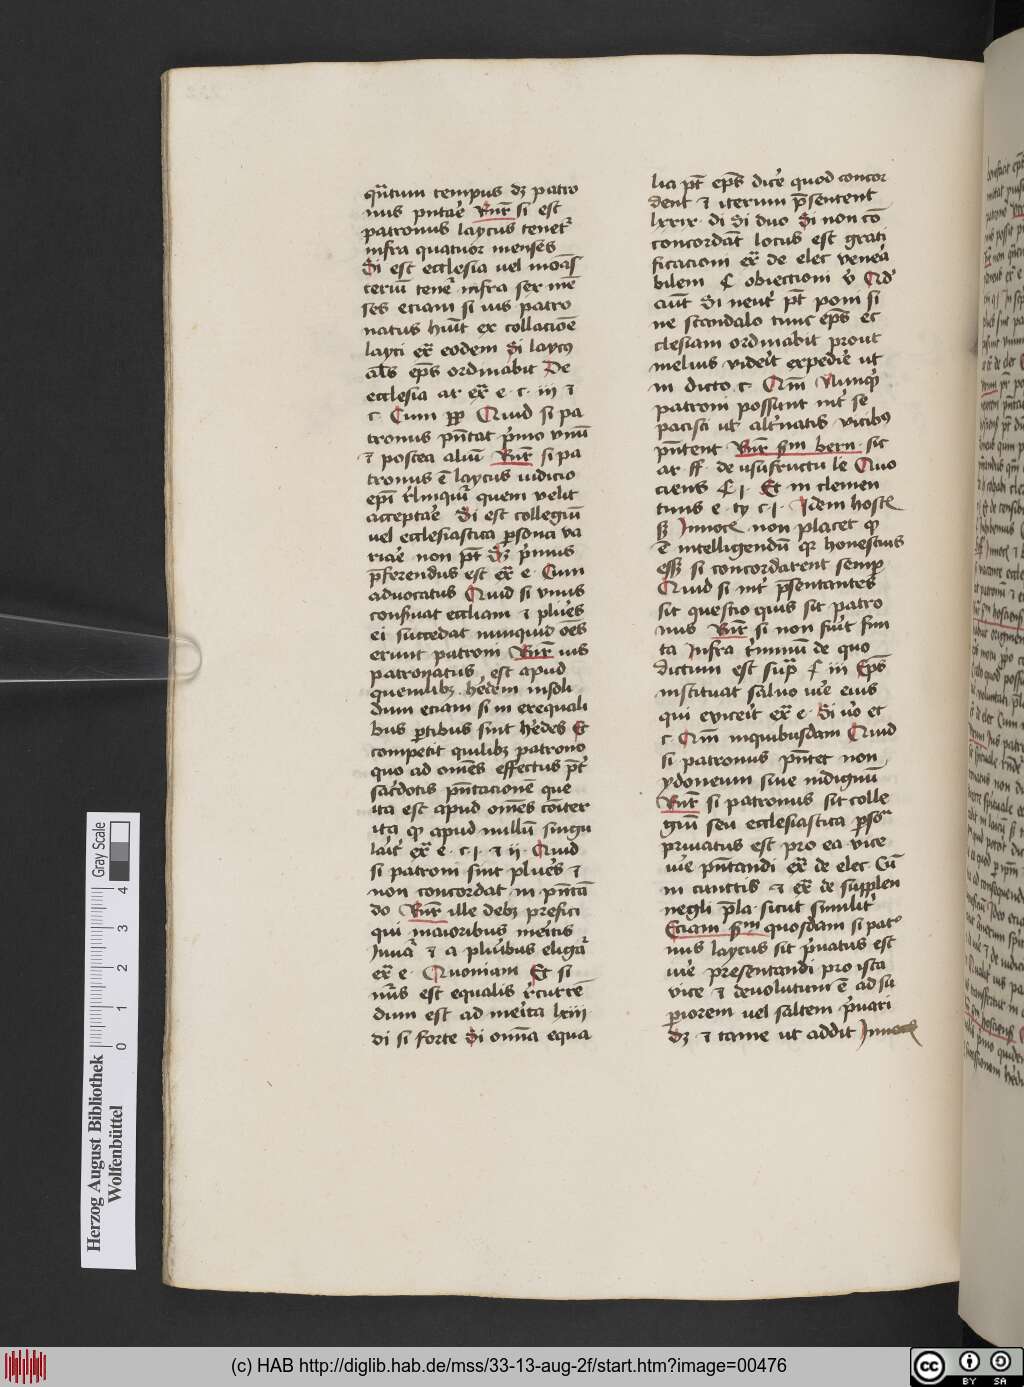 qn̄tum tempus dꝫ patro
nus pn̄tare Rn̄r si est
patronus laycus tenetr
infra quatuor menses
Si est ecclesia uel monas
teriū tener infra sex mē
ses eciam si ius patro
natus hūit ex collacōe
layci exͣ eodem Si laycꝰ
als ep̄s ordinabit De
ecclesia ar exͣ e · c · iii ⁊
c · Cum ꝓp Quid si pa
tronus pn̄tat p̄mo vnū
⁊ postea aliū Rn̄r si pa
tronus ē laycus iudicio
ep̄i rlinquir quem velit
acceptare Si est collegiū
uel ecclesiastica persona va
riare non pt̄ Sꝫ p̄mus
p̄ferendus est exͣ e · Cum
aduocatus Quid si vnus
construat eccliam ⁊ plures
ei succedat nunquid oēs
erunt patroni Rn̄r ius
patronatus est apud
quemlibꝫ heredem insoli
dum eciam si in exequali
bus ꝑtibus sint heredes Et
competit quilibꝫ patrono
quo ad omēs effectus pt̄
sacerdotis pn̄tacionē que
ita est apud omēs cōiter
ita qꝫ apud nullū singu
larit exͣ e · c · j · ⁊ ij · Quid
si patroni sint plures ⁊
non concordāt in pn̄tā
do Rn̄r ille debꝫ prefici
qui maioribus meritis
Iuuar ⁊ a pluribus eligar
exͣ e · Quoniam Et si
nūs est equalis recurrē
dum est ad merita lxiii
di si forte Si omnia equa
lia pt̄ ep̄s dicere quod concor
dent ⁊ iterum p̄sentent
lxxix · di Si duo Si non cō
concordāt locus est grati
ficacioni exͣ de elec venera
bilem § obiectioni v̄ Qd
aiūt Si neutr pt̄ poni si
ne scandalo tunc ep̄s ec
clesiam ordinabit prout
melius viderit expedire ut
in dicto · c · Qm̄ Nunqd
patroni possunt intr se
pacisci ut altrnatis vicibꝰ
pn̄tent Rn̄r sm̄ bern · sic
ar ff · de usufructu le Quo
ciens § j · Et in clemen
tinis e · ty c · j · Idem host
sꝫ Innoc non placet qꝫ
ē intelligendū qr honestius
esset si concordarent semp
Quid si intr p̄sentantes
sit questio quis sit patro
nus Rn̄r si non fiūt fini
ta Infra trminū de quo
dictum est supra § iii Ep̄s
instituat saluo iure eius
qui euicerit exͣ e · Si vero et
c · Qm̄ in quibusdam Quid
si patronus pn̄tet non
ydoneum siue indignū
Rn̄r si patronus sit colle
giū seu ecclesiastica ꝑsona
priuatus est pro ea vice
iure pn̄tandi exͣ de elec Cū
in cunctis ⁊ exͣ de supplen
negli p̄la sicut similitr
Eciam sm̄ quosdam si patro
nus laycus sit p̄uatus est
iure presentandi pro ista
vice ⁊ deuolutum ē ad su
ꝑiorem uel saltem p̄uari
dꝫ ⁊ tame ut addit Innoc
Herzog August Bibliothek
Wolfenbüttel
Gray Scale
0 1 2 3 4
(c) HAB http://diglib.hab.de/mss/33-13-aug-2f/start.htm?image=00476
cc BY SA